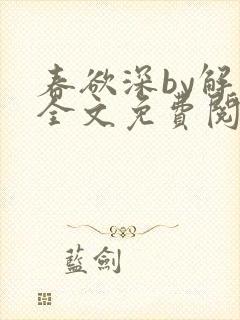 春欲深by解
全文免費閱
藍劍